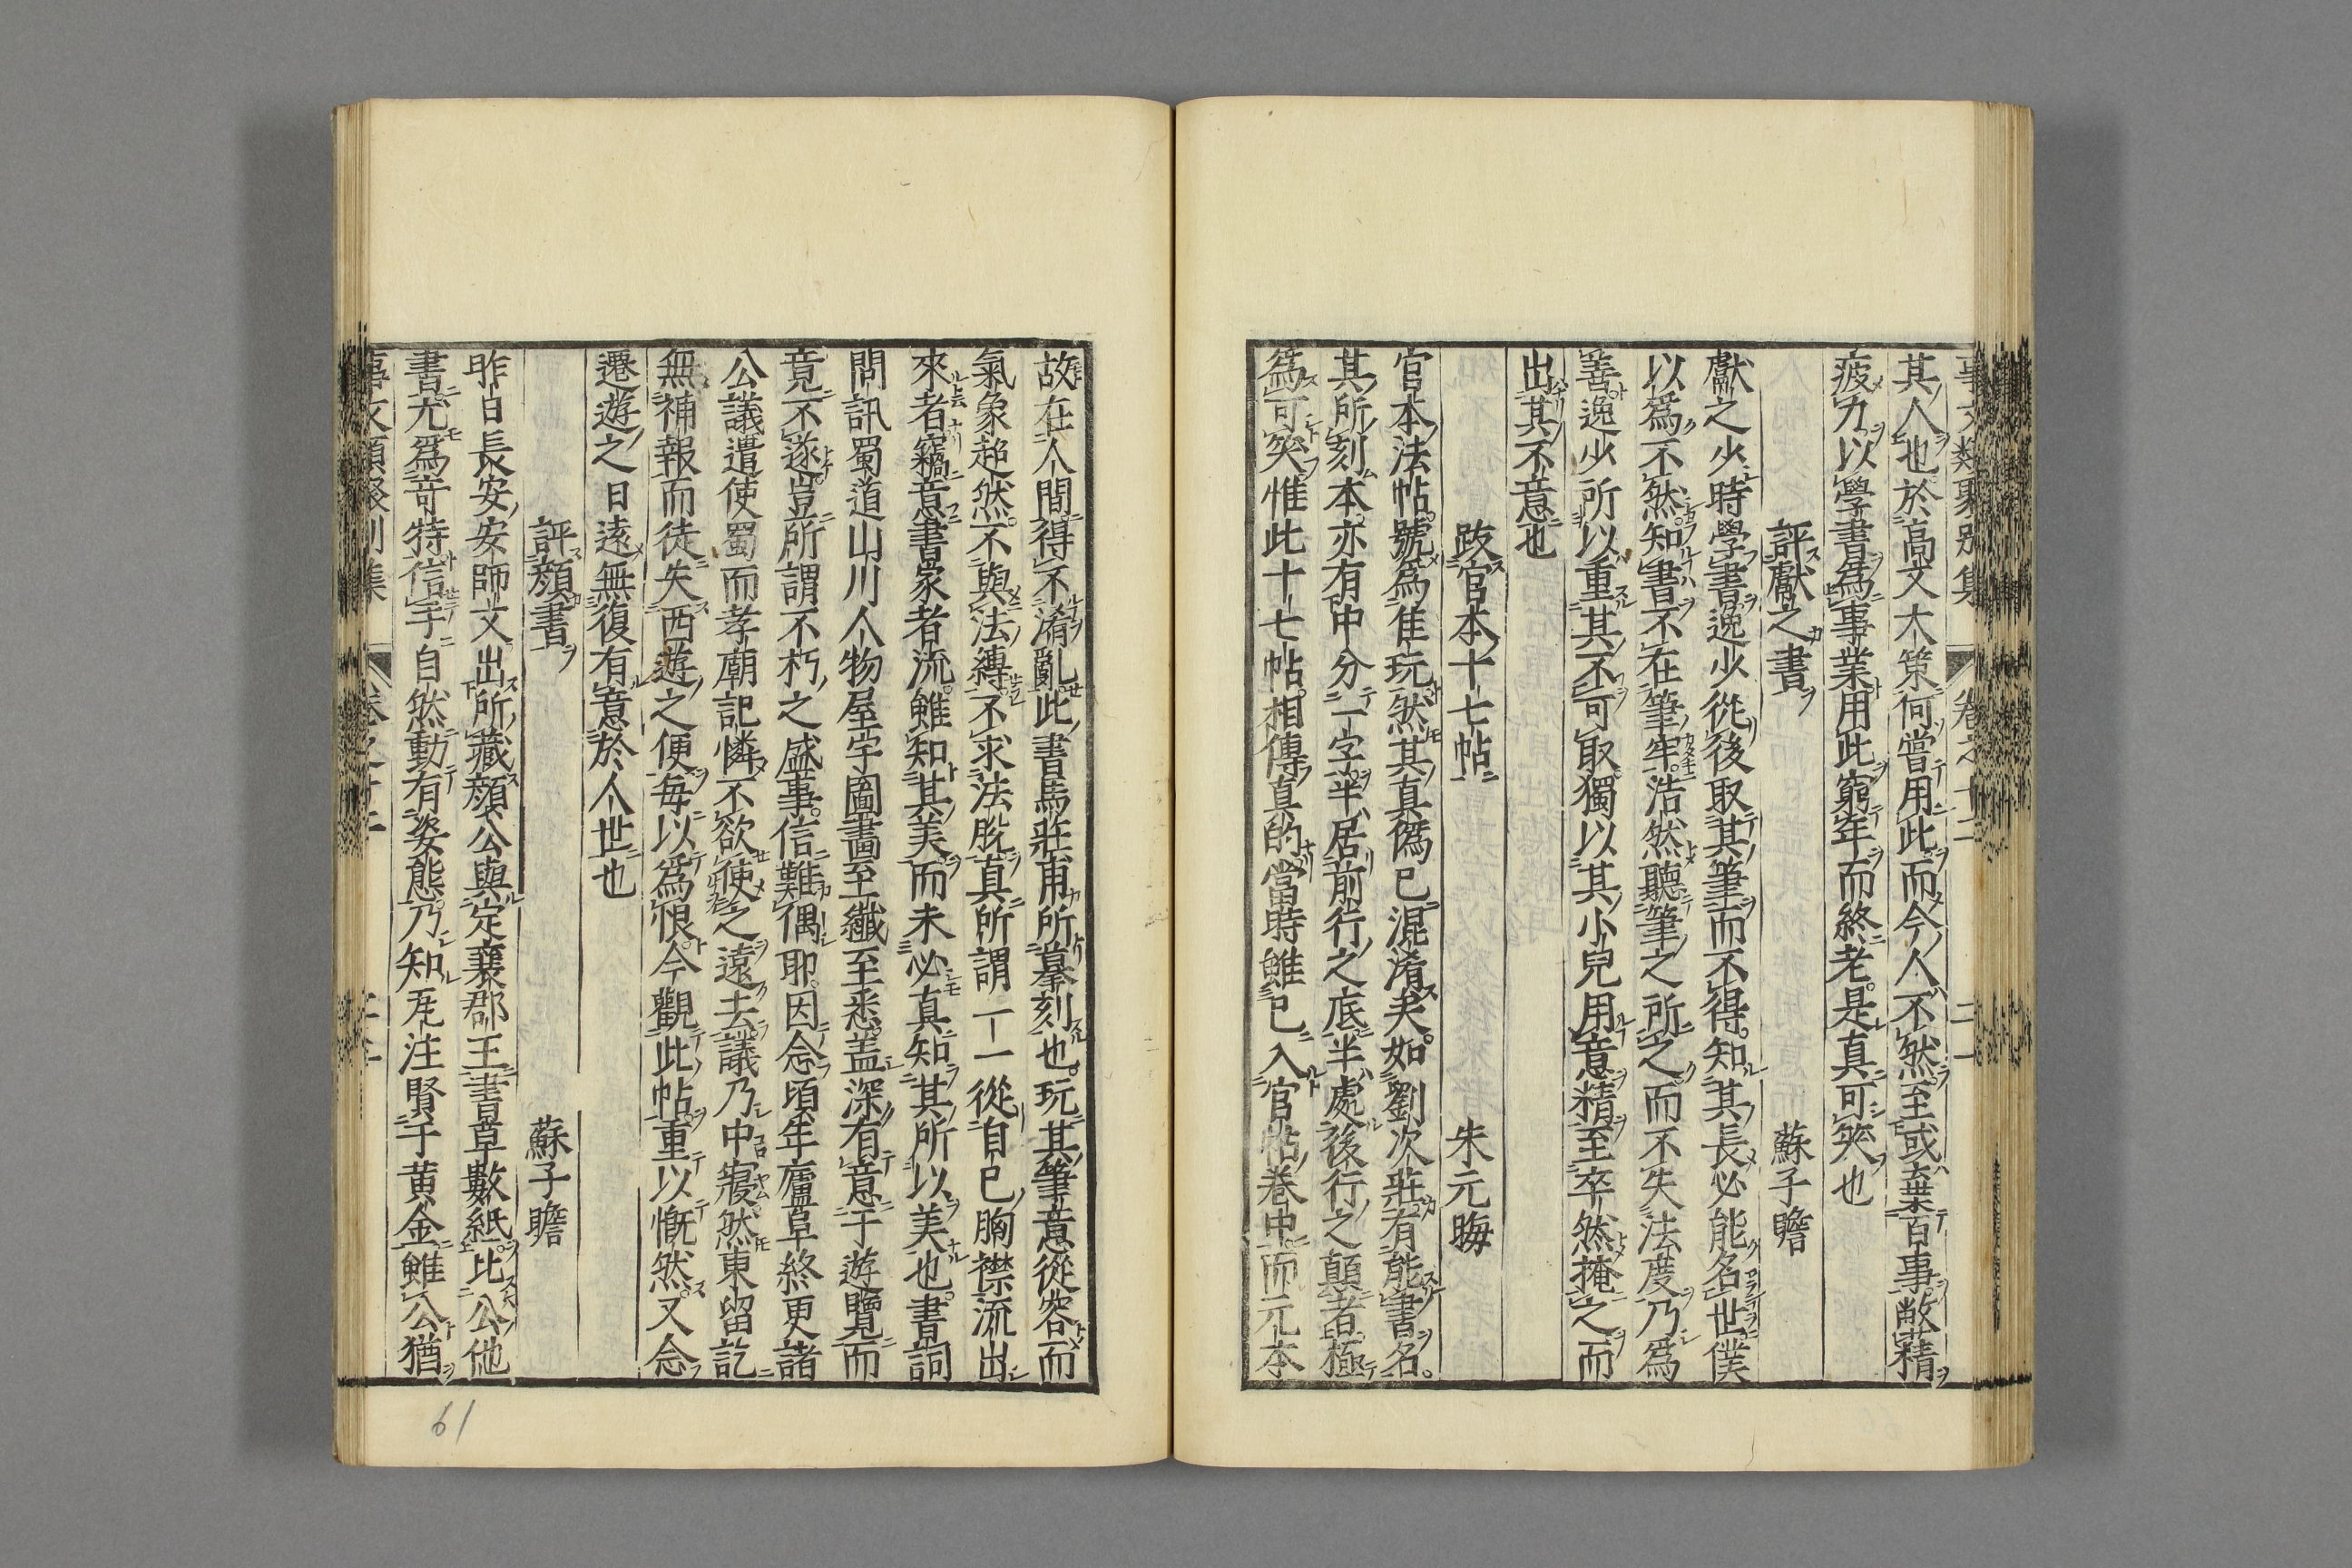 事文類聚別集 卷之十二
其人也於高文大策何嘗用此而今人不然至或棄百事敝精
疲力以學書爲事業用此窮年而終老是真可笑也
評獻之書 蘇子瞻
獻之少時學書逸少從後取其筆而不得知其長必能名世僕
以爲不然知書不在筆牢浩然聽筆之所之而不失法度乃爲
善逸少所以重其不可取獨以其小兒用意精至卒然掩之而
出其不意也
跋官本十七帖 朱元晦
官本法帖號爲佳玩然其真僞已混淆矣如劉次莊有能書名
其所刻本亦有中分一字半居前行之底半處後行之顛者極
爲可笑惟此十七帖相傳真的當時雖已入官帖卷中而元本
故在人間得不淆亂此書馬莊甫所摹刻也玩其筆意從容而
氣象超然不與法縛不求法脫真所謂一一從自己胸襟流出
來者竊意書家者流雖知其美而未必真知其所以美也書詞
問訊蜀道山川人物屋宇圖畫至纖至悉盖深有意于遊覽而
竟不遂豈所謂不朽之盛事信難偶耶因念頃年廬阜終更諸
公議遣使蜀而孝廟記憐不欲使之遠去議乃中寢然東留訖
無補報而徒失西遊之便每以爲恨今觀此帖重以慨然又念
遷遊之日遠無復有意於人世也
評顏書 蘇子瞻
昨日長安安師文出所藏顏公與定襄郡王書草數紙比公他
書尤爲竒特信手自然動有姿態乃知瓦注賢于黄金雖公猶
事文類聚別集 卷之十二
61